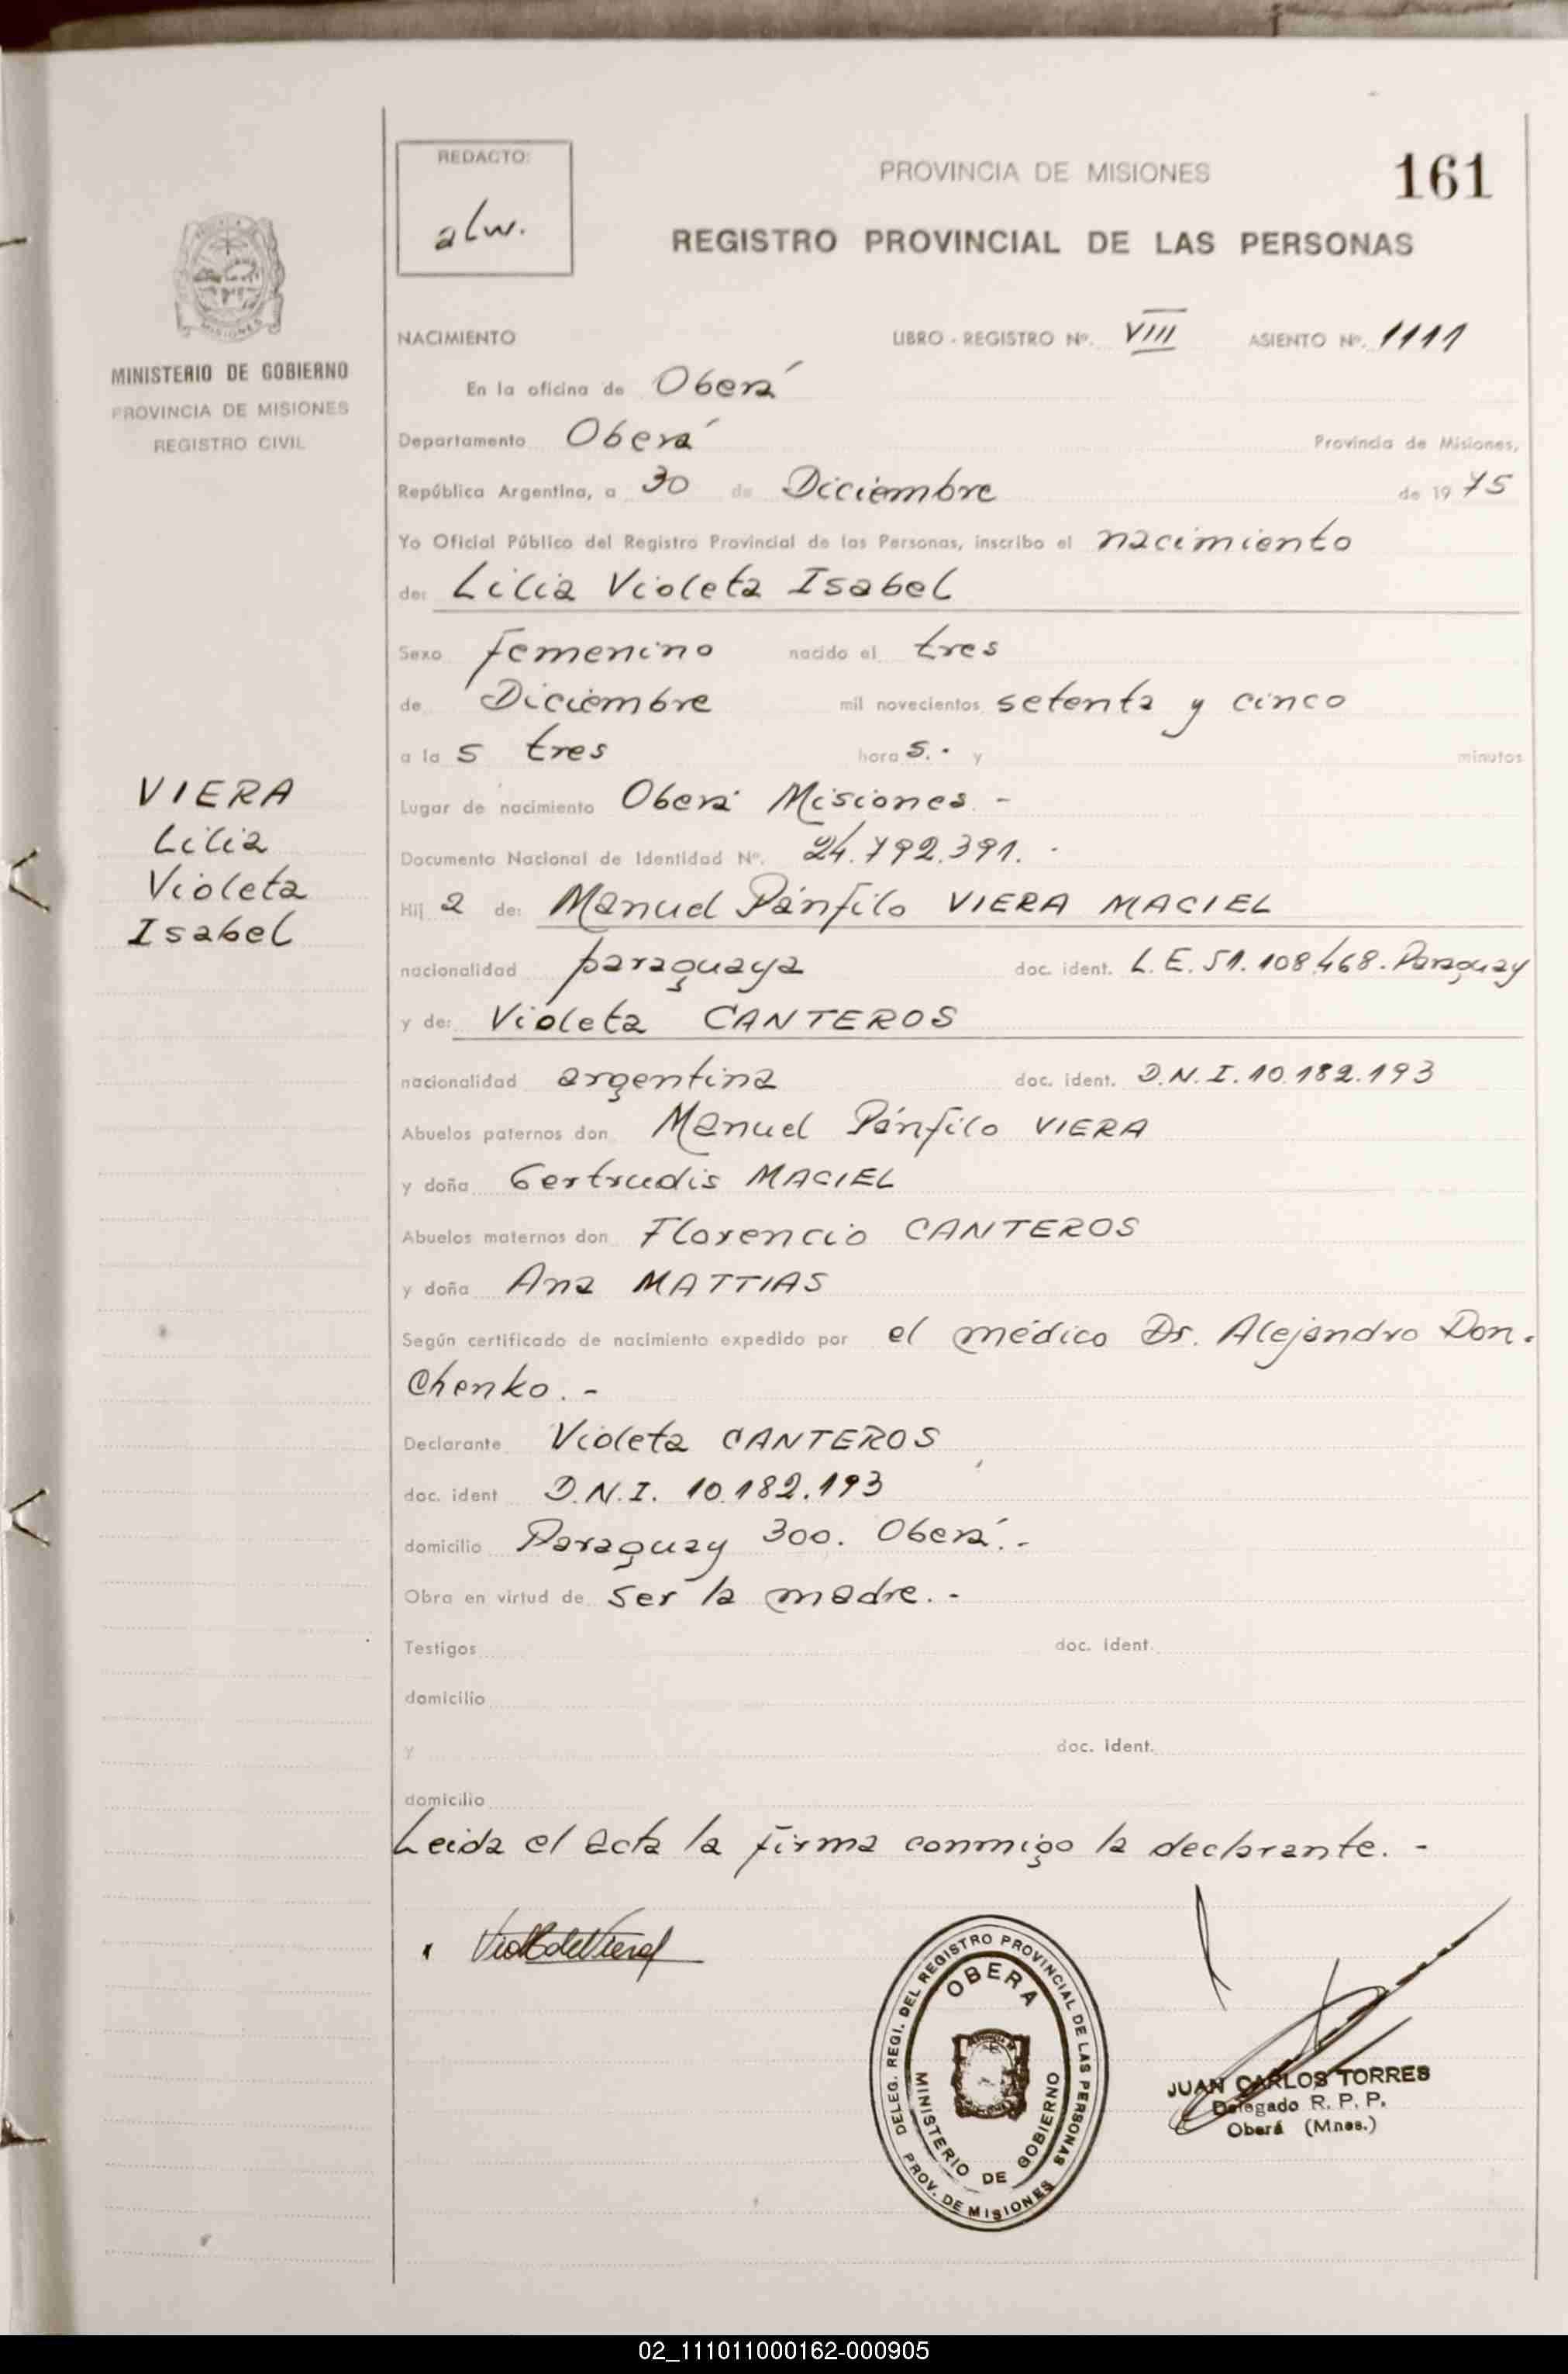 REDACTO:
alw.
PROVINCIA DE MISIONES
161
REGISTRO PROVINCIAL DE LAS PERSONAS
MISIONES
MINISTERIO DE GOBIERNO
PROVINCIA DE MISIONES
REGISTRO CIVIL
NACIMIENTO LIBRO - REGISTRO Nº. VIII ASIENTO Nº. 1111
En la oficina de Oberá
Departamento Oberá Provincia de Misiones,
República Argentina, a 30 de Diciembre de 19 75
Yo Oficial Público del Registro Provincial de las Personas, inscribo el nacimiento
de: Lilia Violeta Isabel
Sexo femenino nacido el tres
de Diciembre mil novecientos setenta y cinco
a la s tres hora s.- y minutos
VIERA
Lilia
Violeta
Isabel
Lugar de nacimiento Oberá Misiones.-
Documento Nacional de Identidad Nº. 24.792.391.-
Hij a de: Manuel Pánfilo VIERA MACIEL
nacionalidad paraguaya doc. ident. L.E. 51.108.468. Paraguay
y de: Violeta CANTEROS
nacionalidad argentina doc. ident. D.N.I. 10.182.193
Abuelos paternos don Manuel Pánfilo VIERA
y doña Gertrudis MACIEL
Abuelos maternos don Florencio CANTEROS
y doña Ana MATTIAS
Según certificado de nacimiento expedido por el médico Dr. Alejandro Don-
Chenko.-
Declarante Violeta CANTEROS
doc. ident D.N.I. 10.182.193
domicilio Paraguay 300. Oberá.-
Obra en virtud de ser la madre.-
Testigos doc. ident.
domicilio
y doc. ident.
domicilio
Leida el acta la firma conmigo la declarante.-
DELEG. REGI. DEL REGISTRO PROVINCIAL DE LAS PERSONAS
OBERA
MINISTERIO DE GOBIERNO
PROV. DE MISIONES
JUAN CARLOS TORRES
Delegado R. P. P.
Oberá (Mnes.)
02_111011000162-000905